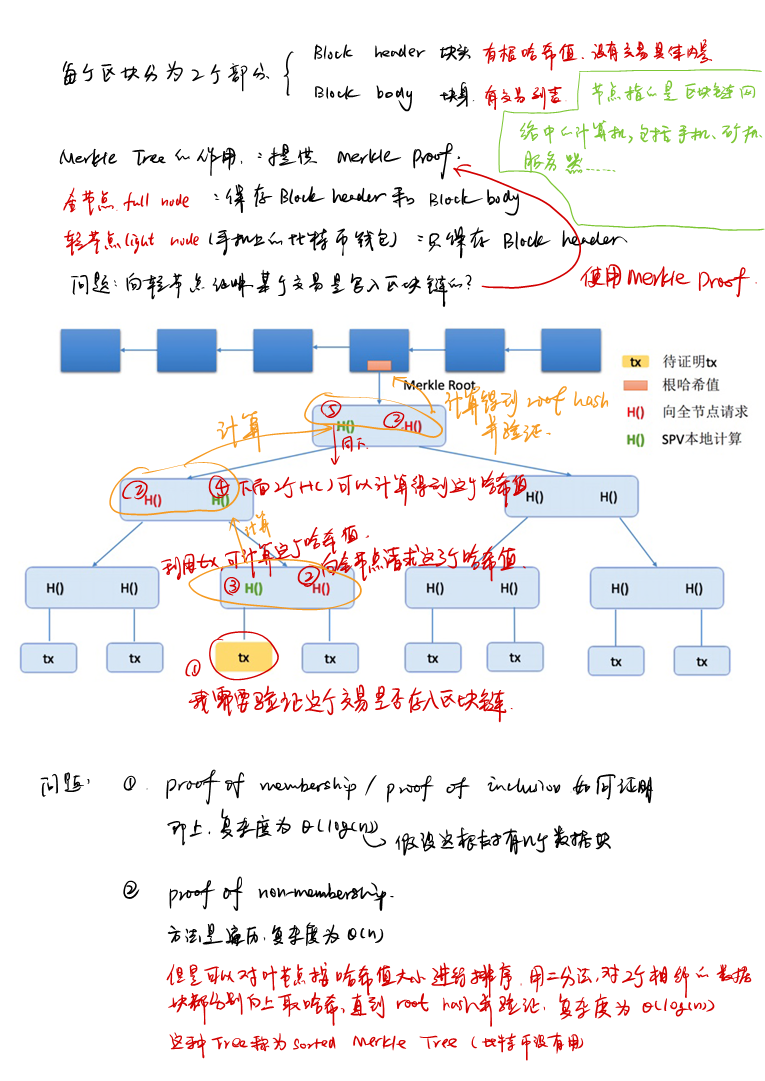 每个区块分为2个部分 { Block header 块头 有根哈希值. 没有交易具体内容
Block body 块身. 有交易列表.
节点指的是区块链网
络中的计算机, 包括手机、矿机、
服务器......
Merkle Tree的作用: 提供 Merkle Proof.
全节点 full node : 保存Block header和Block body
轻节点light node (手机上的比特币钱包) : 只保存 Block header
问题: 向轻节点证明某个交易是写入区块链的?
使用Merkle Proof.
Merkle Root
tx 待证明tx
根哈希值
H() 向全节点请求
H() SPV本地计算
计算得到 root hash
并验证.
计算
⑤ H() ② H()
同下
② H() ④ H()
下面2个H( )可以计算得到这个哈希值
H() H()
计算
利用tx,可计算这个哈希值.
向全节点请求这3个哈希值.
H() H() ③ H() ② H() H() H() H() H()
tx tx tx tx tx tx tx tx
①
我需要验证这个交易是否存入区块链.
问题: ① proof of membership / proof of inclusion 如何证明
即上, 复杂度为 θ(log(n)) 假设这棵树有n个数据块
② proof of non-membership.
方法是遍历, 复杂度为 θ(n)
但是可以对叶节点按哈希值大小进行排序. 用二分法, 对2个相邻的数据
块都分别向上取哈希, 直到 root hash并验证, 复杂度为 θ(log(n))
这种Tree称为 sorted Merkle Tree (比特币没有用)